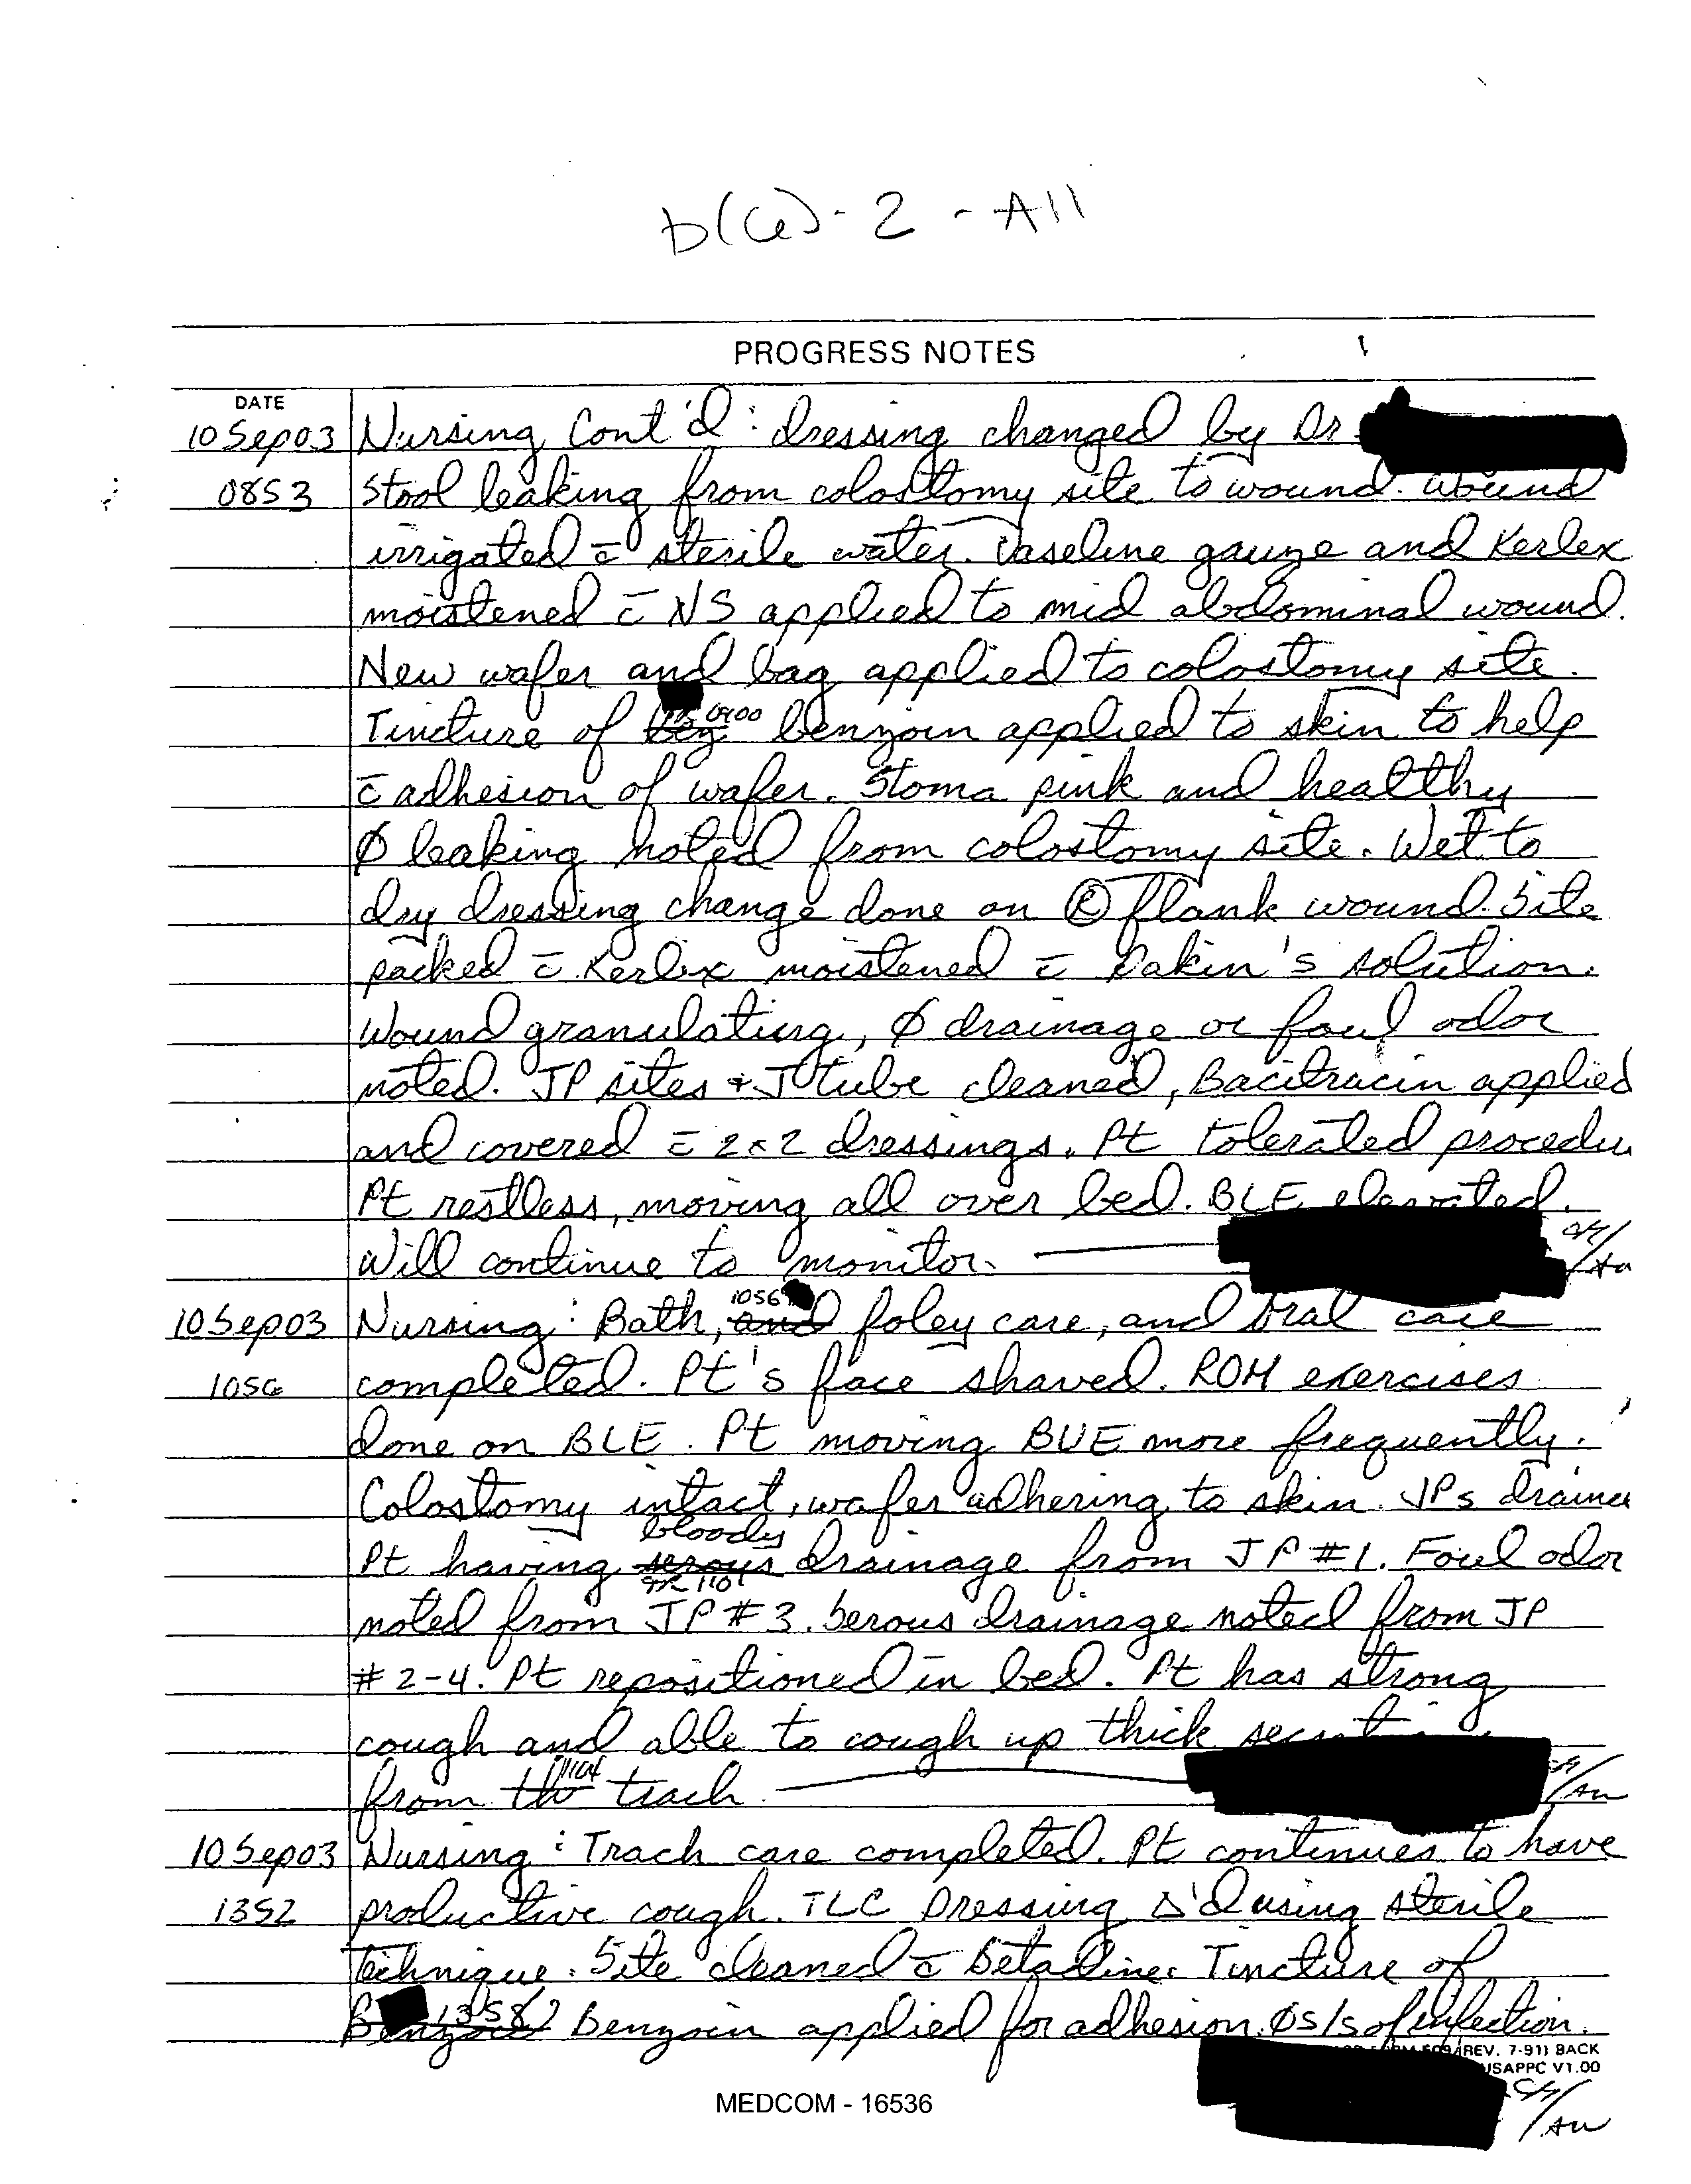 b(6)-2 - All
PROGRESS NOTES
DATE
10 Sep 03 Nursing Cont'd: dressing changed by Dr.
0853 stool leaking from colostomy site to wound. Wound
irrigated c̄ sterile water. Vaseline gauze and Kerlex
moistened c̄ NS applied to mid abdominal wound.
New wafer and bag applied to colostomy site.
0900
Tincture of benzoin applied to skin to help
c̄ adhesion of wafer. Stoma pink and healthy
Ø leaking noted from colostomy site. Wet to
dry dressing change done on Ⓡ flank wound. Site
packed c̄ Kerlex moistened c̄ Dakin's solution.
Wound granulating, Ø drainage or foul odor
noted. JP sites + J tube cleaned, Bacitracin applied
and covered c̄ 2x2 dressings. Pt tolerated procedu
Pt restless, moving all over bed. BLE elevated.
Will continue to monitor.
1056
10 Sep 03 Nursing: Bath, and foley care, and oral care
1056 completed. Pt's face shaved. ROM exercises
done on BLE. Pt moving BUE more frequently.
Colostomy intact, wafer adhering to skin. JPs draine
bloody
Pt having serous drainage from JP #1. Foul odor
1101
noted from JP #3. Serous drainage noted from JP
#2-4. Pt repositioned in bed. Pt has strong
cough and able to cough up thick
from trach
10 Sep 03 Nursing: Trach care completed. Pt continues to have
1352 productive cough. TLC Dressing Δ'd using sterile
technique. Site cleaned c̄ Betadine. Tincture of
1358
Benzoin applied for adhesion. Øs/s of infection.
(REV. 7-91) BACK
USAPPC V1.00
MEDCOM - 16536